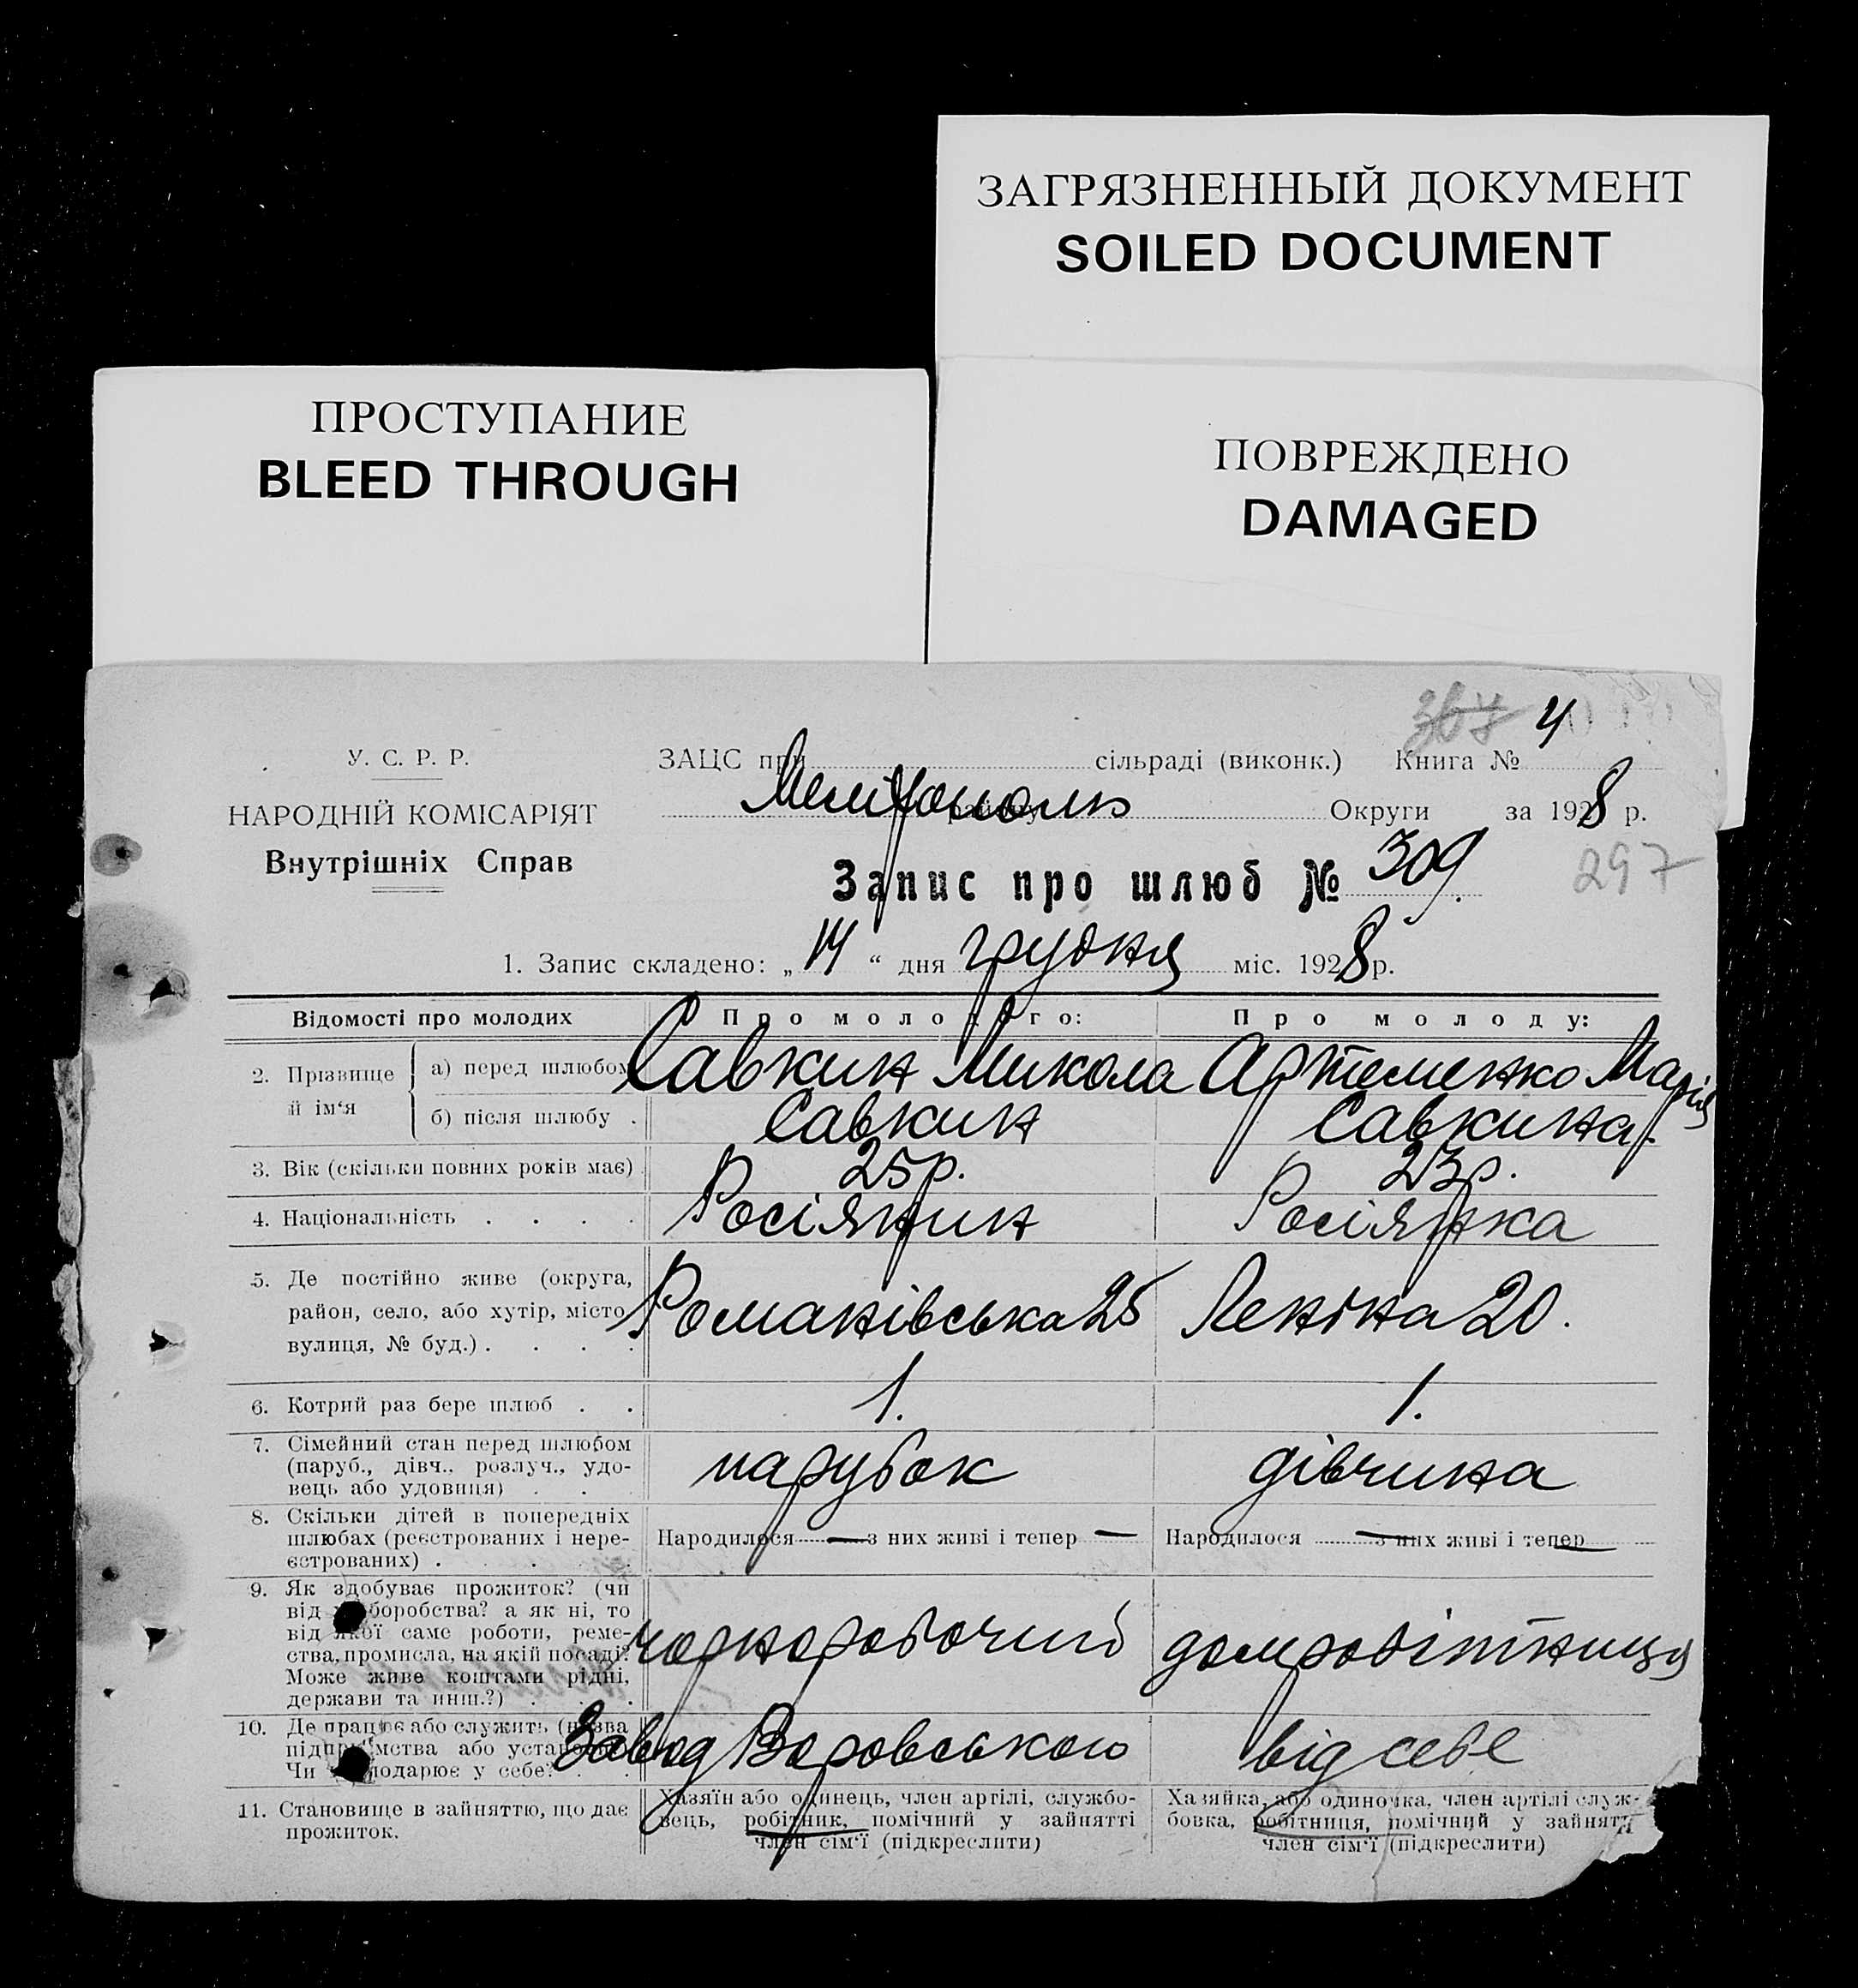 ЗАГРЯЗНЕННЫЙ ДОКУМЕНТ
SOILED DOCUMENT
ПРОСТУПАНИЕ
BLEED THROUGH
ПОВРЕЖДЕНО
DAMAGED
4
У. С. Р. Р.
НАРОДНІЙ КОМІСАРІЯТ
Внутрішніх Справ
ЗАЦС при сільраді (виконк.) Книга №
Мелітополь району Округи за 1928 р.
297
Запис про шлюб № 309.
1. Запис складено: „14“ дня грудня міс. 1928 р.
Відомості про молодих
Про молодого:
Про молоду:
2. Прізвище й ім‘я
а) перед шлюбом
Савкин Микола
Артеменко Марія
б) після шлюбу .
Савкин
Савкина.
3. Вік (скільки повних років має)
25р.
23р.
4. Національність . . . .
Росіянин
Росіянка
5. Де постійно живе (округа,
район, село, або хутір, місто,
вулиця, № буд.) . . . .
Романівська 25
Леніна 20.
6. Котрий раз бере шлюб . .
1.
1.
7. Сімейний стан перед шлюбом
(паруб., дівч., розлуч., удо-
вець або удовиця) . . .
парубок
дівчина
8. Скільки дітей в попередніх
шлюбах (реєстрованих і нере-
єстрованих) . . . . .
Народилося — з них живі і тепер —
Народилося — з них живі і тепер —
9. Як здобуває прожиток? (чи
від боробства? а як ні, то
від якої саме роботи, реме-
ства, промисла, на якій посаді?
Може живе коштами рідні,
держави та инш.?) . . .
чорноробочий
домробітниця
10. Де працює або служить (назва
підприємства або установи)
Чи подарює у себе? . .
Завод Воровського
від себе
11. Становище в зайняттю, що дає
прожиток.
Хазяїн або одинець, член артілі, службо-
вець, робітник, помічний у зайнятті
член сім‘ї (підкреслити)
Хазяйка, або одиночка, член артілі служ-
бовка, робітниця, помічний у зайнятті
член сім‘ї (підкреслити)